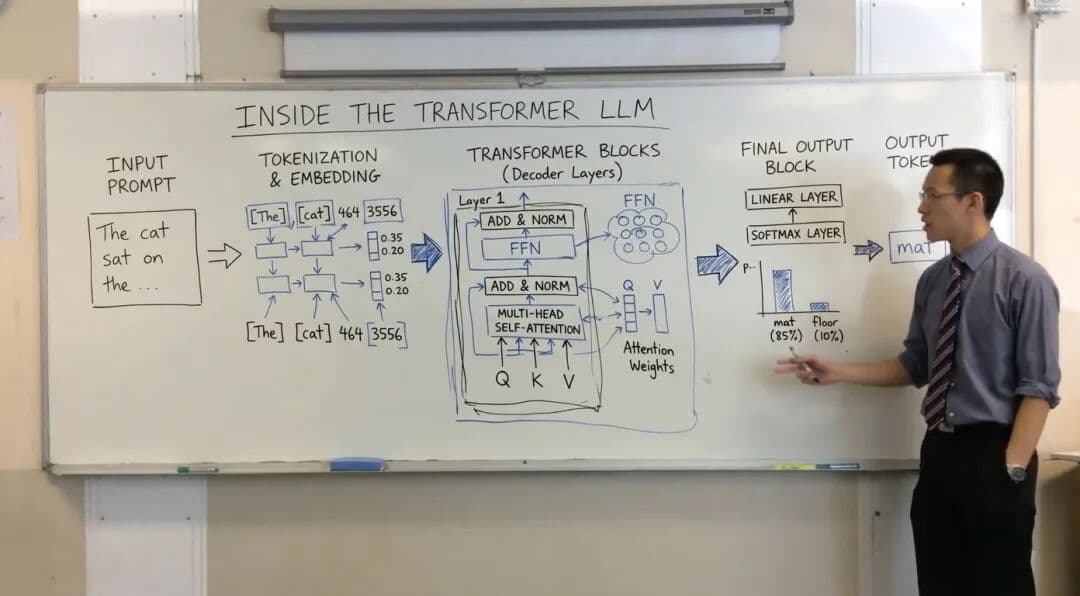 INSIDE THE TRANSFORMER LLM
INPUT
PROMPT
The cat
sat on
the ...
TOKENIZATION
& EMBEDDING
[The] [cat] 464 3556
0.35
0.20
0.35
0.20
[The] [cat] 464 3556
TRANSFORMER BLOCKS
(Decoder Layers)
Layer 1
ADD & NORM
FFN
ADD & NORM
MULTI-HEAD
SELF-ATTENTION
Q K V
FFN
Q V
Attention
Weights
FINAL OUTPUT
BLOCK
LINEAR LAYER
SOFTMAX LAYER
P..
mat floor
(85%) (10%)
OUTPUT
TOKE
mat